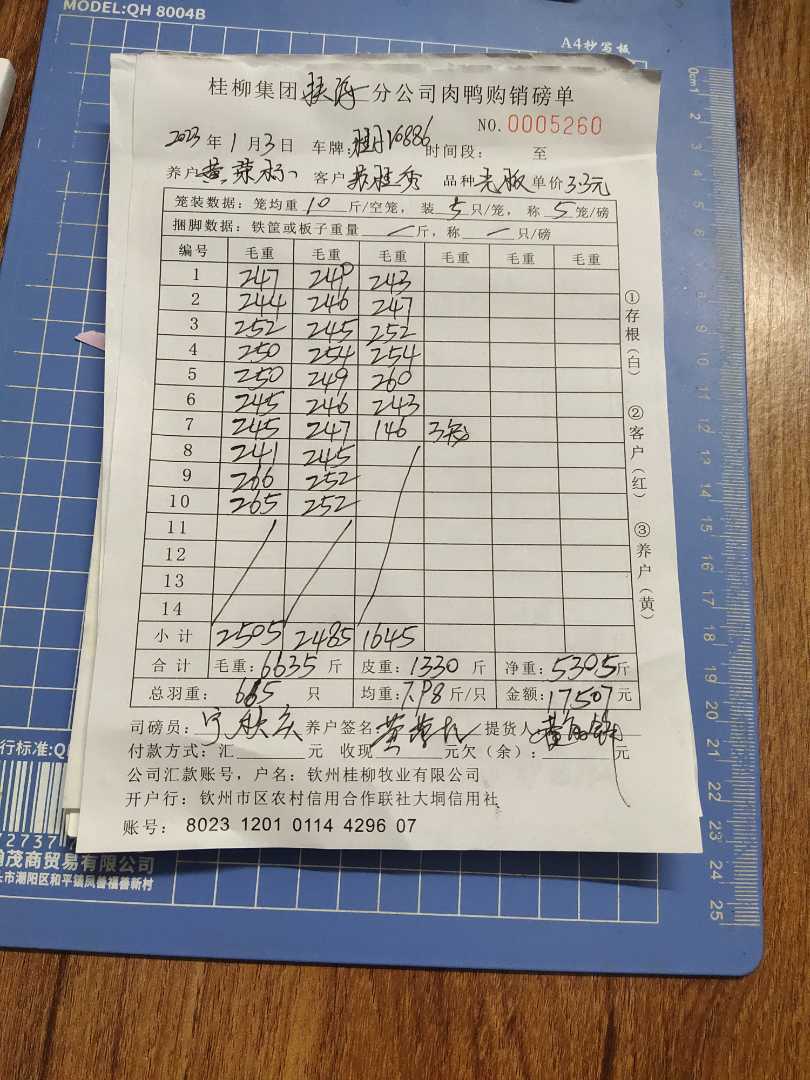 MODEL:QH 8004B
A4抄写板
桂柳集团 分公司肉鸭购销磅单
NO.0005260
2023年1月3日 车牌: 时间段: 至
养户 黄荣 客户 品种 单价3.3元
笼装数据: 笼均重 10 斤/空笼, 装 5 只/笼, 称 5 笼/磅
捆脚数据: 铁筐或板子重量 斤, 称 只/磅
编号 毛重 毛重 毛重 毛重 毛重 毛重
1 247 249 243
2 244 246 247
3 252 245 252
4 250 254 254
5 250 249 260
6 245 246 243
7 245 247 146 3
8 241 245
9 266 252
10 265 252
11
12
13
14
小计 2505 2485 1645
合计 毛重:6635 斤 皮重:1330 斤 净重:5305斤
总羽重: 665 只 均重:7.98斤/只 金额:17507元
司磅员: 养户签名: 提货人:
付款方式:汇 元 收现 元欠(余): 元
公司汇款账号, 户名: 钦州桂柳牧业有限公司
开户行: 钦州市区农村信用合作联社大垌信用社
账号: 8023 1201 0114 4296 07
①存根(白)
②客户(红)
③养户(黄)
行标准:Q
72737
茂商贸易有限公司
市潮阳区和平镇凤善福善新村
0cm1 2 3 4 5 6 7 8 9 10 11 12 13 14 15 16 17 18 19 20 21 22 23 24 25